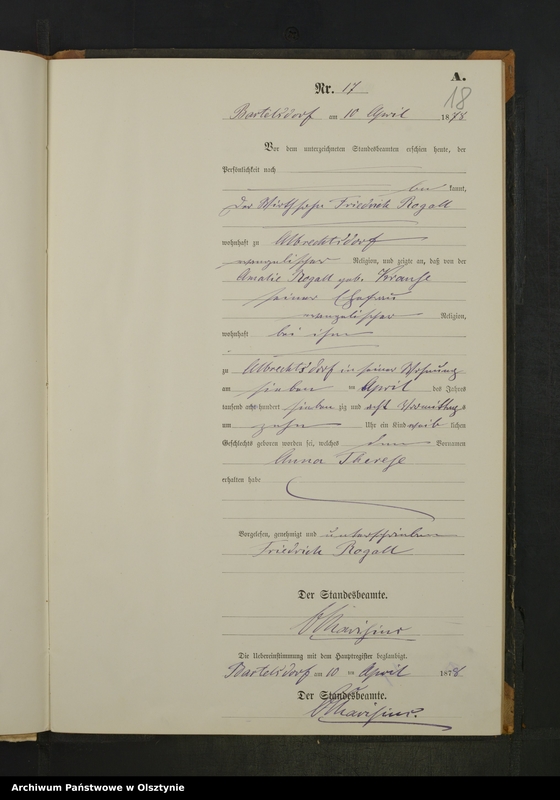 A.
18
Nr. 17
Bartelsdorf am 10 April 1878
Vor dem unterzeichneten Standesbeamten erschien heute, der
Persönlichkeit nach
be kannt,
der Wirth Friedrich Rogall
wohnhaft zu Albrechtsdorf
evangelischer Religion, und zeigte an, daß von der
Amalie Rogall geb. Krause
seiner Ehefrau
evangelischer Religion,
wohnhaft bei ihm
zu Albrechtsdorf in seiner Wohnung
am sieben ten April des Jahres
tausend acht hundert sieben zig und acht Vormittags
um zehn Uhr ein Kind weib lichen
Geschlechts geboren worden sei, welches den Vornamen
Anna Therese
erhalten habe
Vorgelesen, genehmigt und unterschrieben
Friedrich Rogall
Der Standesbeamte.
Die Uebereinstimmung mit dem Hauptregister beglaubigt.
Bartelsdorf am 10 ten April 1878
Der Standesbeamte.
Archiwum Państwowe w Olsztynie